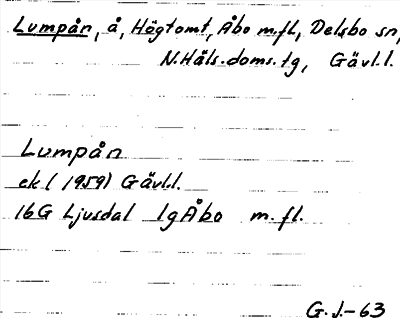 Lumpån, å, Högtomt, Åbo m.fl, Delsbo sn,
N.Häls.doms.tg, Gävl.l.
Lumpån
ek (1959) Gävl.l.
16G Ljusdal 1g Åbo m.fl.
G.J.-63